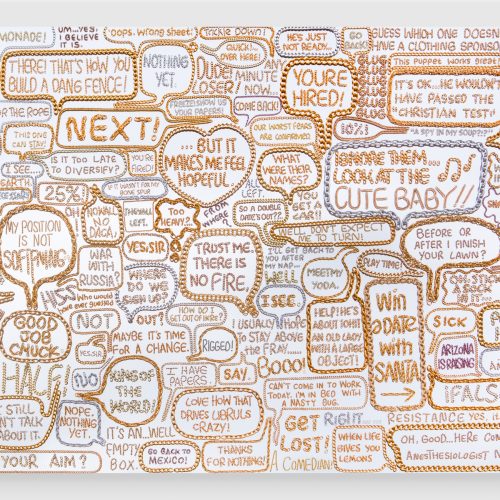 MONADE!
UM...YES,
I BELIEVE
IT IS.
OOPS. WRONG SHEET!
TRICKLE DOWN!
HE'S JUST
NOT READY...
GO
BACK!
GUESS WHICH ONE DOESN'T
HAVE A CLOTHING SPONSOR
THERE! THAT'S HOW YOU
BUILD A DANG FENCE!
NOTHING
YET
QUICK!
OVER HERE!
DUDE!
LOSER!
ANY
MINUTE
NOW...
YOU'RE
HIRED!
THIS PUPPET WORKS GREAT
GLUG
GLUG
GLUG
GLUG
IT'S OK... HE WOULDN'T
HAVE PASSED THE
CHRISTIAN TEST!
FOR THE ROPE
FREEZE! SHOW US
YOUR PAPERS!
COME BACK!
THIS ONE
CAN STAY!
NEXT!
...BUT IT
MAKES ME FEEL
HOPEFUL
OUR WORST FEARS
ARE CONFIRMED!
10%!
"A SPY IN MY SOUP?!?"
I SEE...
IS IT TOO LATE
TO DIVERSIFY?
YOU'RE
FIRED!
WHAT
WERE THEIR
NAMES?
IGNORE THEM...
LOOK AT THE
CUTE BABY!!
EARTH
25%!
IF IT WASN'T FOR THE
BONE SPUR
ALL
LEFT.
MY POSITION
IS NOT
SOFTENING
OH
NO!
THEY ALL
LEFT.
TOO
HEAVY...?
FROM
WHERE
SO A DOUBLE
DATE'S OUT??
YOU
GET A
CAR!!
WELL, DON'T EXPECT
ME TO TURN!
BEFORE OR
AFTER I FINISH
YOUR LAWN?
WAR
WITH
RUSSIA?
YES, SIR
TRUST ME.
THERE IS
NO FIRE,
I'LL GET BACK TO
YOU AFTER
MY NAP...
HELL
MEET MY
YODA.
PLAY TIME!
HISS
WHERE
DO WE
SIGN UP?
I SEE..
GOOD
JOB
CHUCK
NOT
OUT?
HOW DO I
GET OUT OF HERE?
I USUALLY HOPE
TO STAY ABOVE
THE FRAY...
HELP! HE'S
ABOUT TO HIT
AN OLD LADY
WITH A LARGE
OBJECT!
WIN
A DATE
WITH
SANTA!
SICK
YES, SIR
MAYBE IT'S TIME
FOR A CHANGE.
RIGGED!
BOOO!
ARIZONA
IS RAISING
HALF!
NO
KING OF
THE
WORLD!
I HAVE
SAY
CAN'T COME IN TO WORK
TODAY. I'M IN BED WITH
A NASTY BUG
STILL
N'T TALK
ABOUT IT.
NOPE.
NOTHING
YET.
LOVE HOW THAT
DRIVES LIBRULS
CRAZY!
GET
LOST!
RIGHT
RESISTANCE
IT'S AN...WELL..
EMPTY
BOX.
WHEN LIFE
GIVES YOU
LEMONS
OH, GOOD...HERE COM
ANESTHESIOLOGIST
YOUR AIM?
GO BACK TO
MEXICO!
THANKS
FOR NOTHING!
A COMEDIAN!